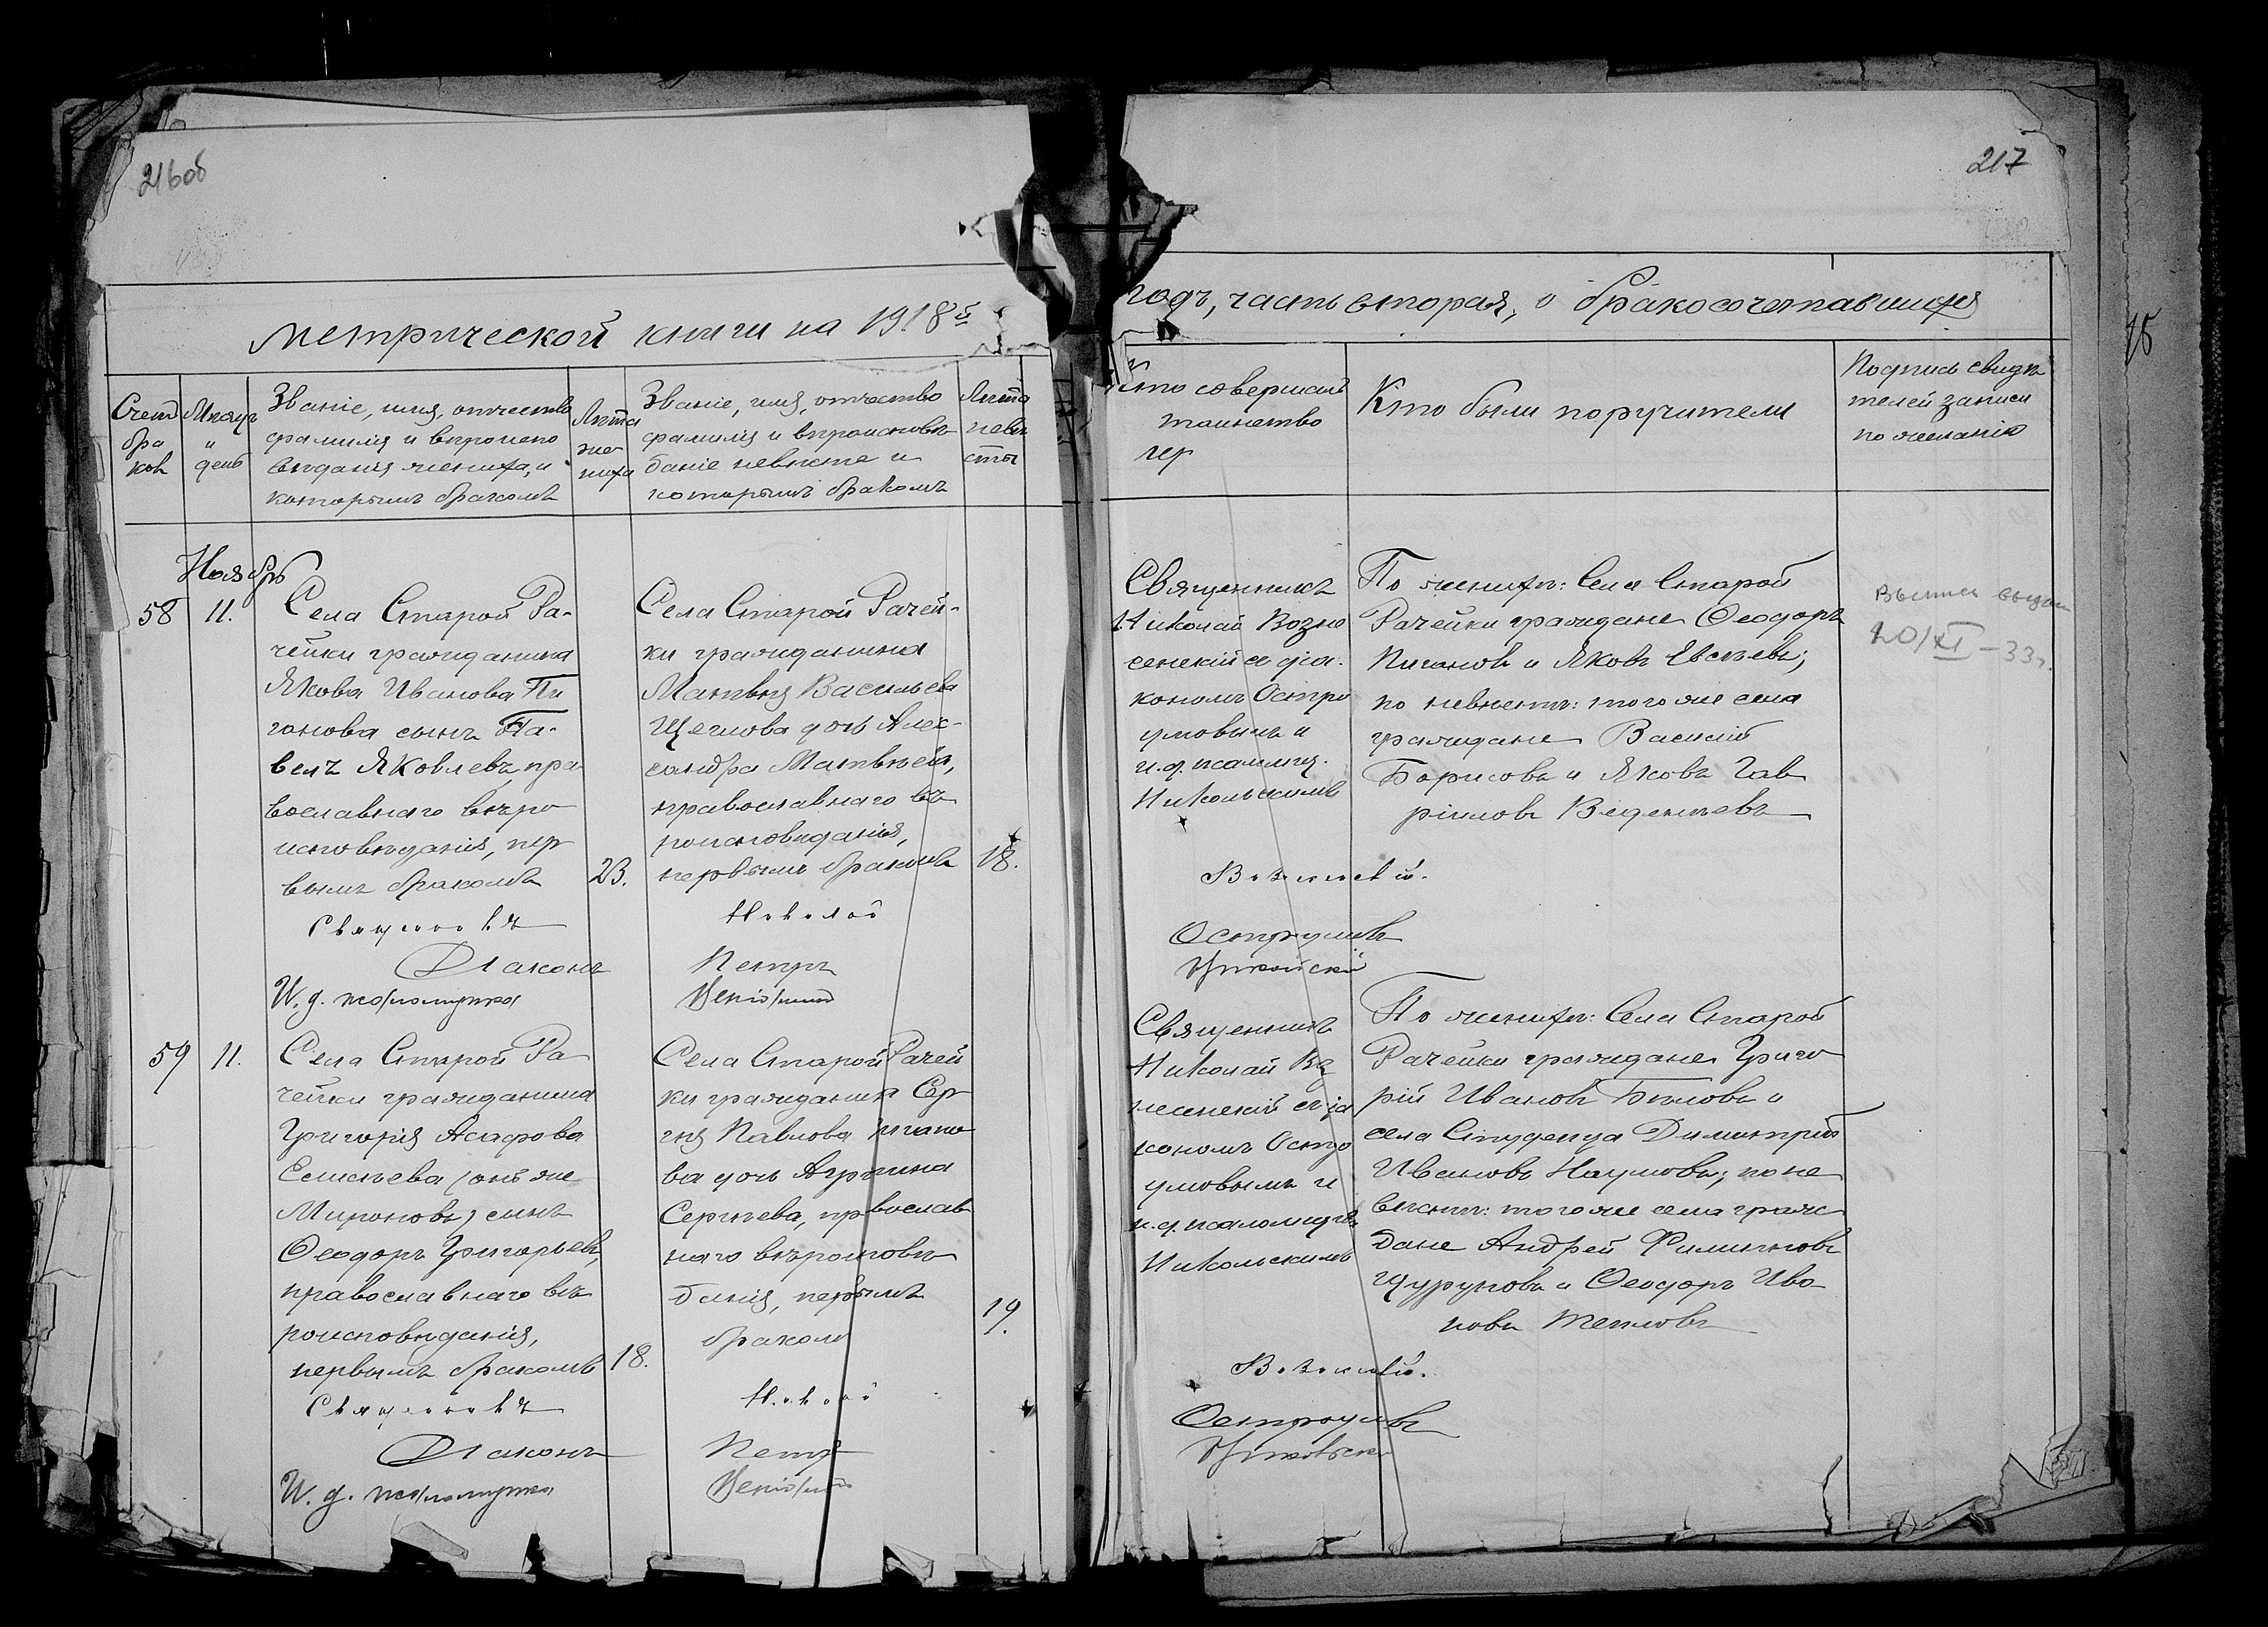 216об
217
Метрической книги на 1918й
годъ, часть вторая, о бракосочетавшихся
15
Счетъ
бра
ковъ
Мѣсяцъ
и
день
Званіе, имя, отчество
фамилія и вѣроиспо
вѣданія жениха, и
которымъ бракомъ
Лѣта
же
ниха
Званіе, имя, отчество
фамилія и вѣроисповѣ
даніе невѣсты и
которымъ бракомъ
Лѣта
невѣ
сты
Кто совершалъ
таинство
Кто были поручители
Подпись свидѣ
телей записи
по желанію
Ноябрь
58
11.
Села Старой Ра-
чейки гражданина
Якова Иванова Пи
ганова сынъ Па-
велъ Яковлевъ, пра
вославнаго вѣро
исповѣданія, пер
вымъ бракомъ
23.
Села Старой Рачей-
ки гражданина
Матвѣя Васильева
Щеглова дочь Алек-
сандра Матвѣева,
православнаго вѣ
роисповѣданія,
первымъ бракомъ
18.
Священникъ
Николай Возне
сенскій съ діа-
кономъ Остро
умовымъ и
и.д. псаломщ.
Никольскимъ
По женихѣ: Села Старой
Рачейки граждане Ѳеодоръ
Пигановъ и Яковъ Евсѣевъ;
по невѣстѣ: того же села
граждане Василій
Борисовъ и Яковъ Гав
риловъ Веденѣевъ
Выписъ выдан
20/XI - 33г.
Священникъ
Николай
Вознесенскій.
Діаконъ
Петръ
Остроумовъ
И. д. псаломщика
Никольскій
59
11.
Села Старой Ра
чейки гражданина
Григорія Асафова
Елисѣева (онъ же
Мироновъ) сынъ
Ѳеодоръ Григорьевъ,
православнаго вѣ
роисповѣданія,
первымъ бракомъ
18.
Села Старой Рачей
ки гражданина Сер
гія Павлова Пигано
ва дочь Агрипина
Сергѣева, православ
наго вѣроисповѣ
данія, первымъ
бракомъ
19.
Священникъ
Николай Воз
несенскій съ діа
кономъ Остро
умовымъ и
и.д. псаломщик.
Никольскимъ
По женихѣ: Села Старой
Рачейки граждане Григо
рій Ивановъ Бѣловъ и
села Студенца Димитрій
Ивановъ Наумовъ; по не
вѣстѣ: того же села граж
дане Андрей Филипповъ
Щуруповъ и Ѳеодоръ Ива
новъ Тепловъ
Священникъ
Николай
Вознесенскій.
Діаконъ
Петръ
Остроумовъ
И. д. псаломщика
Никольскій